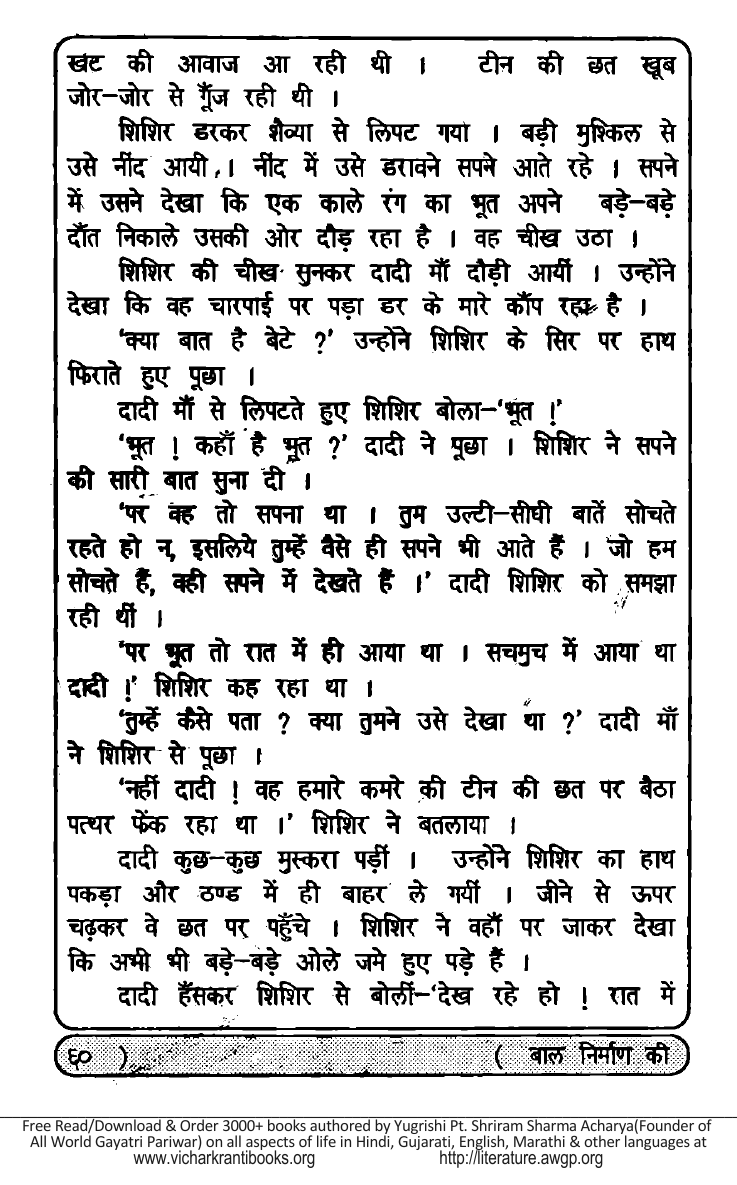 खट की आवाज आ रही थी । टीन की छत खूब
जोर-जोर से गूँज रही थी ।
शिशिर डरकर शैव्या से लिपट गया । बड़ी मुश्किल से
उसे नींद आयी । नींद में उसे डरावने सपने आते रहे । सपने
में उसने देखा कि एक काले रंग का भूत अपने बड़े-बड़े
दाँत निकाले उसकी ओर दौड़ रहा है । वह चीख उठा ।
शिशिर की चीख सुनकर दादी माँ दौड़ी आयीं । उन्होंने
देखा कि वह चारपाई पर पड़ा डर के मारे काँप रहा है ।
‘क्या बात है बेटे ?’ उन्होंने शिशिर के सिर पर हाथ
फिराते हुए पूछा ।
दादी माँ से लिपटते हुए शिशिर बोला-‘भूत !’
‘भूत ! कहाँ है भूत ?’ दादी ने पूछा । शिशिर ने सपने
की सारी बात सुना दी ।
‘पर वह तो सपना था । तुम उल्टी-सीधी बातें सोचते
रहते हो न, इसलिये तुम्हें वैसे ही सपने भी आते हैं । जो हम
सोचते हैं, वही सपने में देखते हैं ।’ दादी शिशिर को समझा
रही थीं ।
‘पर भूत तो रात में ही आया था । सचमुच में आया था
दादी !’ शिशिर कह रहा था ।
‘तुम्हें कैसे पता ? क्या तुमने उसे देखा था ?’ दादी माँ
ने शिशिर से पूछा ।
‘नहीं दादी ! वह हमारे कमरे की टीन की छत पर बैठा
पत्थर फेंक रहा था ।’ शिशिर ने बतलाया ।
दादी कुछ-कुछ मुस्करा पड़ीं । उन्होंने शिशिर का हाथ
पकड़ा और ठण्ड में ही बाहर ले गयीं । जीने से ऊपर
चढ़कर वे छत पर पहुँचे । शिशिर ने वहाँ पर जाकर देखा
कि अभी भी बड़े-बड़े ओले जमे हुए पड़े हैं ।
दादी हँसकर शिशिर से बोलीं-‘देख रहे हो ! रात में
६० ) ( बाल निर्माण की
Free Read/Download & Order 3000+ books authored by Yugrishi Pt. Shriram Sharma Acharya(Founder of
All World Gayatri Pariwar) on all aspects of life in Hindi, Gujarati, English, Marathi & other languages at
www.vicharkrantibooks.org http://literature.awgp.org